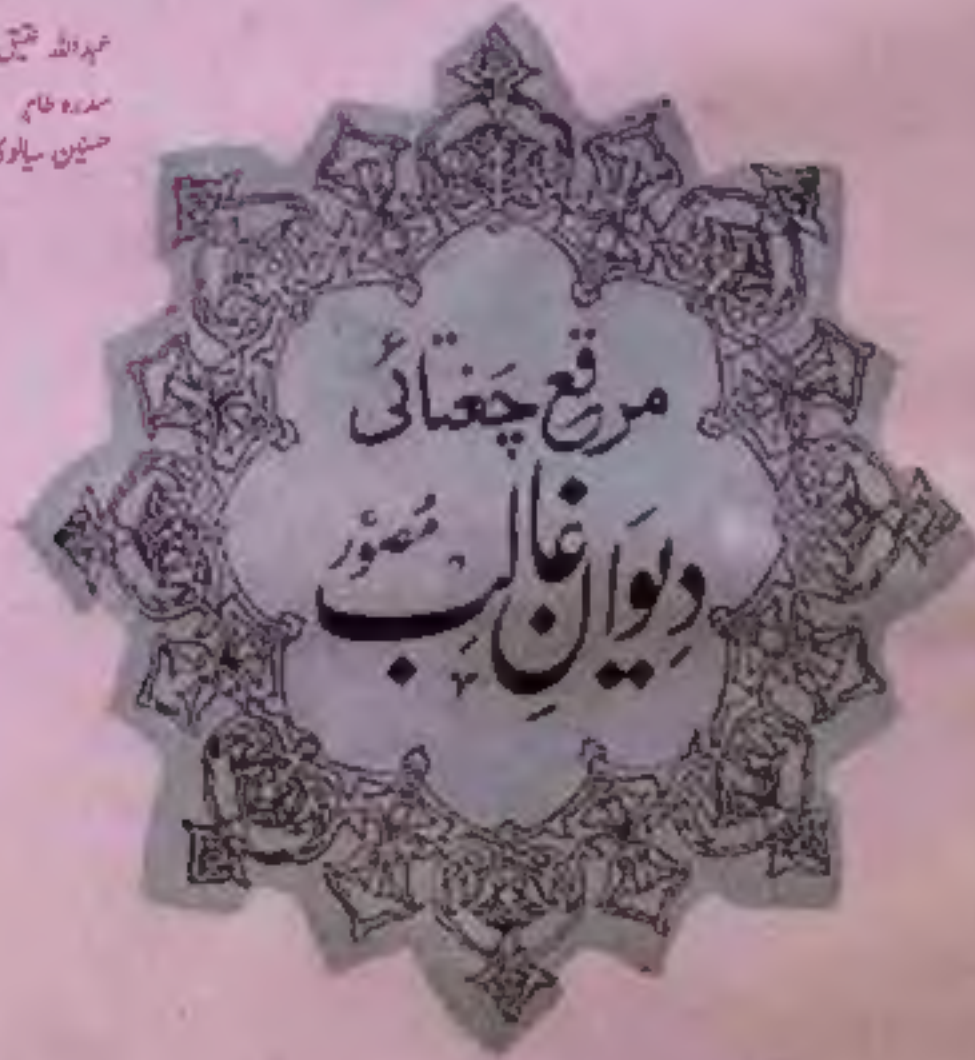 عبداللہ عتیق
سدرہ طاہر
حسنین سیالوی
مرقع چغتائی
دیوانِ غالب مُصوّر